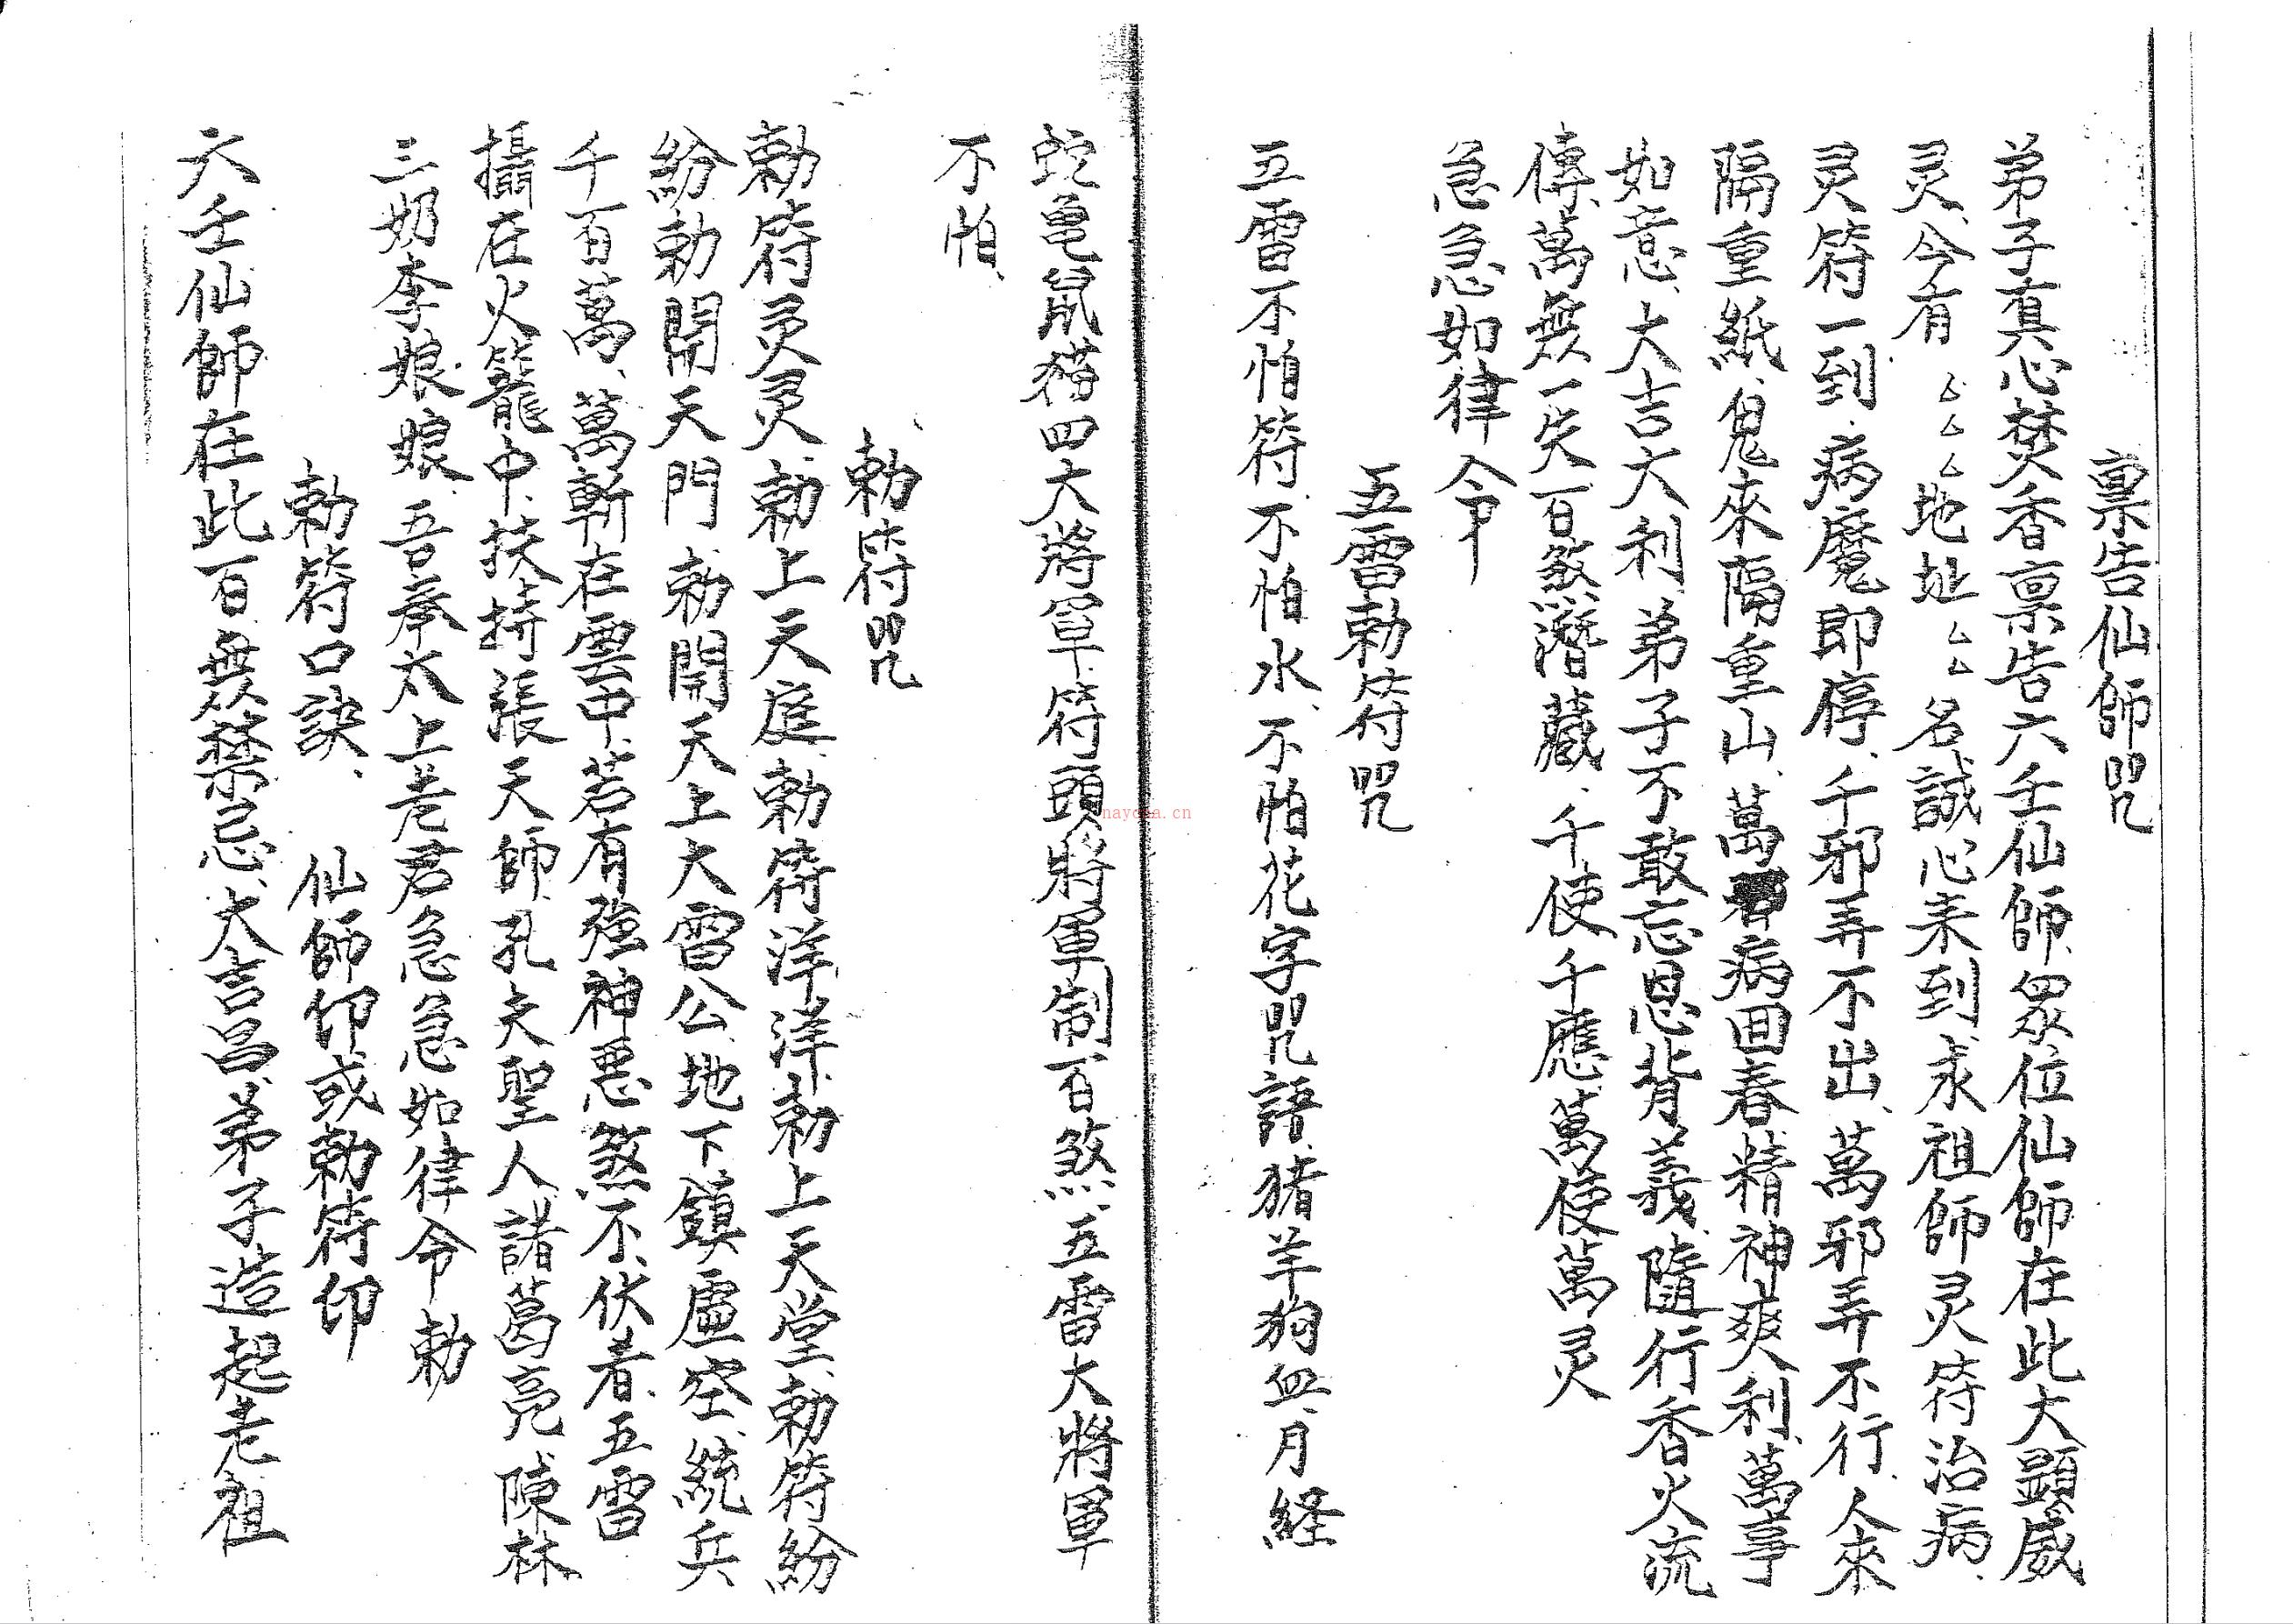 禀告仙師咒
弟子真心焚香禀告六壬仙師、眾位仙師在此大顯威
灵、今有、△△△地址、△△名誠心来到求祖師灵符治病、
灵符一到、病魔即停、千邪弄不出、萬邪弄不行、人來
隔重紙、鬼來隔重山、萬病回春、精神爽利、萬事
如意、大吉大利、弟子不敢忘恩背義、隨行香火流
傳、萬無一失、百煞潛藏、千使千應、萬使萬灵
急急如律令
五雷勅符咒
五雷不怕符、不怕水、不怕花字咒語、猪羊狗血、月経
蛇龟鼠猫四大將軍、符頭將軍制百煞、五雷大將軍
不怕、
勅符咒
勅符灵灵、勅上天庭、勅符洋洋、勅上天堂、勅符紛
紛、勅開天門、勅開天上大雷公、地下鎮虛空、統兵
千百萬、萬斬在雲中、若有強神惡煞不伏者、五雷
攝在火籠中、扶持張天師、孔夫聖人、諸葛亮、陳林
三奶李娘娘、吾奉太上老君急急如律令勅
勅符口訣、 仙師印或勅符印
六壬仙師在此、百無禁忌、大吉昌、弟子造起老祖
haycha.cn